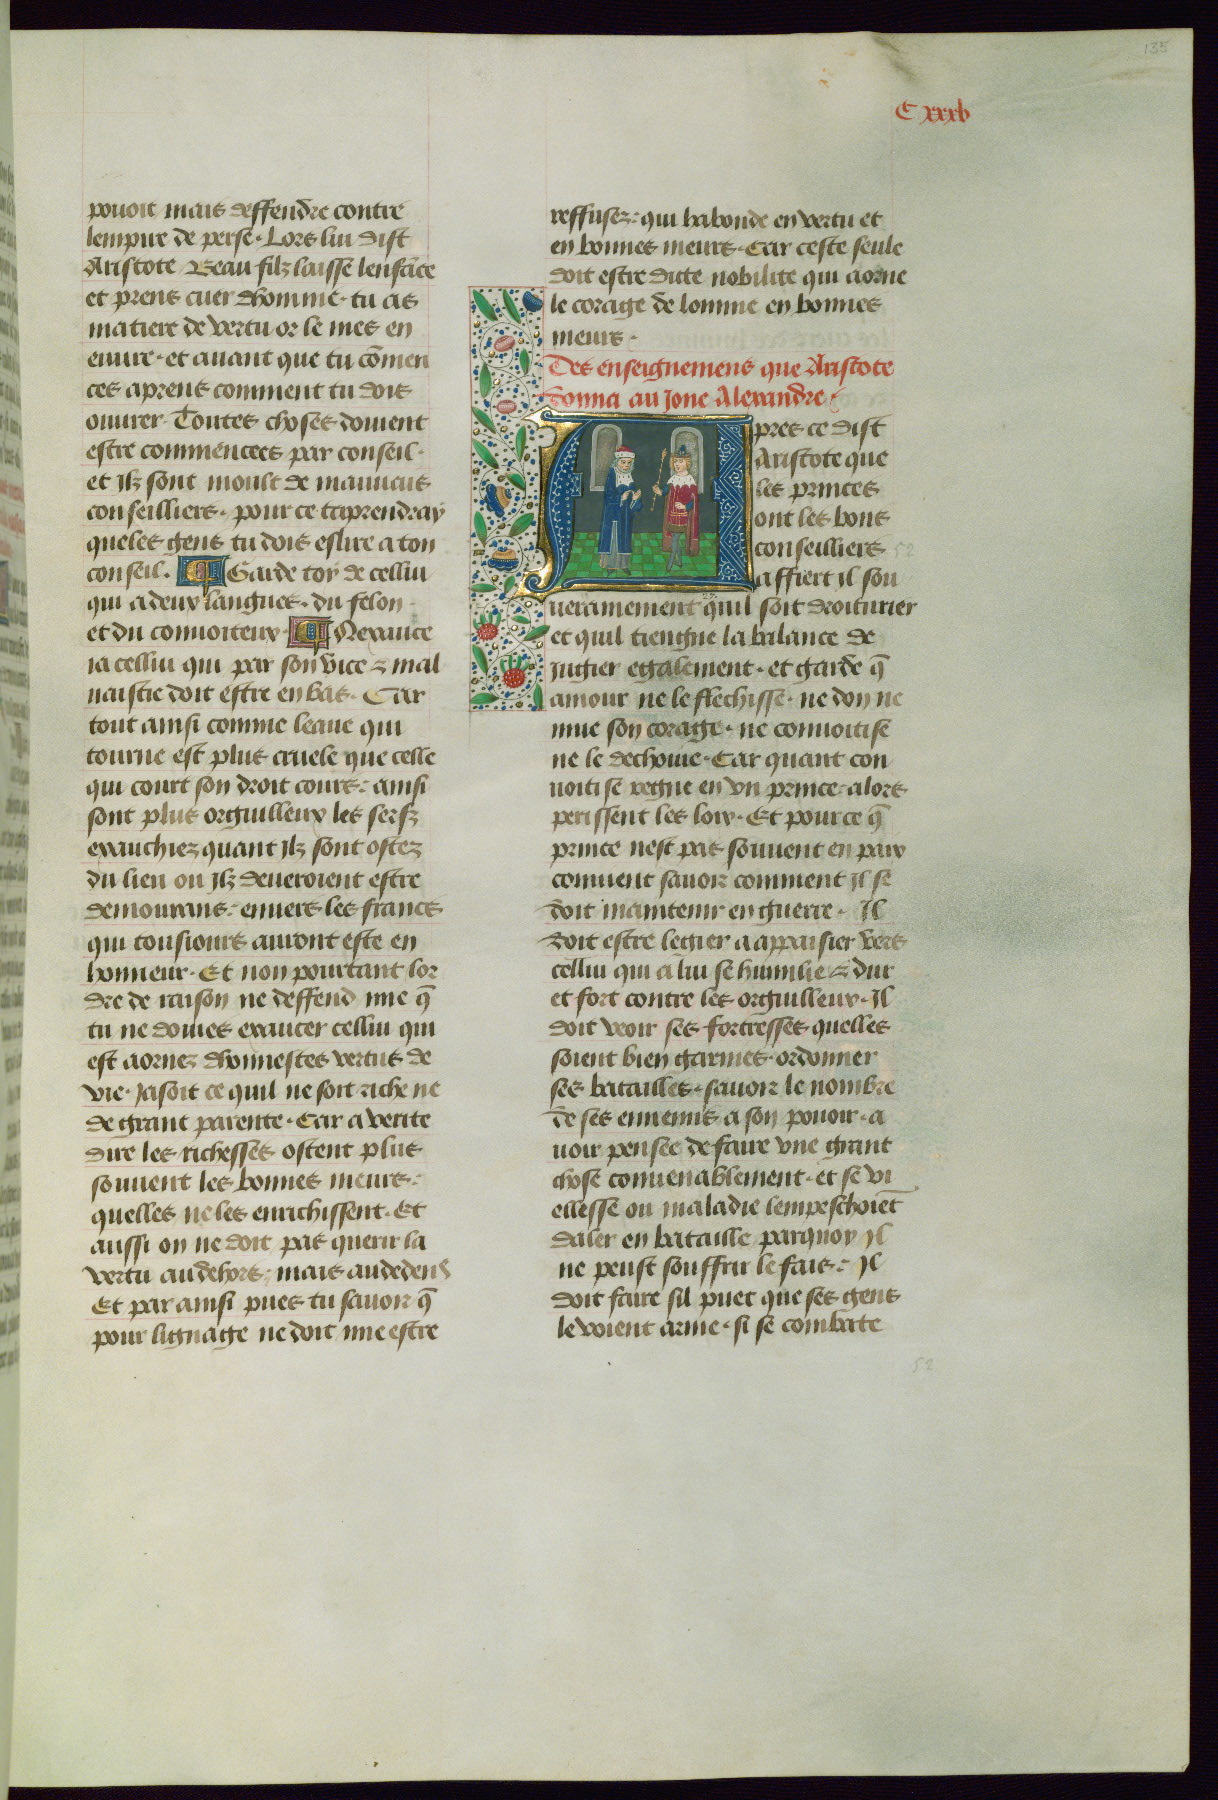 135
C xxxv
pouoit mais deffendre contre
lempire de perse. Lors lui dist
Aristote Beau filz laisse lenfāce
et prens cuer dhomme. tu as
matiere de vertu or le mes en
euure. et auant que tu cōmen
ces aprens comment tu dois
ouurer. Toutes choses doiuent
estre commencees par conseil.
et Ilz sont moult de mauuais
conseilliers. pour ce taprendray
queles gens tu dois eslire a ton
conseil. Garde toy de cellui
qui a deux langues. du felon
et du conuoiteux Nexauce
ia cellui qui par son vice z mal
uaistie doit estre en bas. Car
tout ainsi comme leaue qui
tourne est plus cruele que celle
qui court son droit cours: ainsi
sont plus orguilleux les serfz
exauchiez quant Ilz sont ostez
du lieu ou Ilz deueroient estre
demourans: enuers les francs
qui tousiours auront este en
honneur. Et non pourtant lor
dre de raison ne deffend mie q̄
tu ne doiues exaucer cellui qui
est aornez dhonnestes vertus de
vie. Jasoit ce quil ne soit riche ne
de grant parente. Car a verite
dire les richesses ostent plus
souuent les bonnes meurs:
quelles ne les enrichissent. Et
aussi on ne doit pas querir la
vertu au dehors; mais au dedens
Et par ainsi pues tu sauoir q̄
pour lignage ne doit mie estre
reffusez: qui habonde en vertu et
en bonnes meurs. Car ceste seule
doit estre dicte nobilite qui aorne
le corage de lomme en bonnes
meurs.
Des enseignemens que Aristote
donna au Jone Alexandre.
Apres ce dist
Aristote que
les princes
ont les bons
conseilliers
52
affiert il sou
27.
ueramement quil soit droiturier
et quil tiengne la balance de
Jugier egalement. et garde q̄
amour ne le flechisse. ne don ne
mue son corage. ne conuoitise
ne le dechoiue. Car quant con
uoitise regne en vn prince: alors
perissent les loix. Et pource q̄
prince nest pas souuent en paix
conuient sauoir comment Il se
doit maintenir en guerre. Il
doit estre legier a appaisier vers
cellui qui a lui se humilie z dur
et fort contre les orguilleux. Il
doit veoir ses fortresses quelles
soient bien garnies. ordonner
ses batailles. sauoir le nombre
de ses ennemis a son pouoir. a
uoir pensee de faire vne grant
chose conuenablement. et se vi
ellesse ou maladie lempeschoiēt
daler en bataille parquoy Il
ne peust souffrir le fais: Il
doit faire sil puet que ses gens
le voient arme. si se combate
52